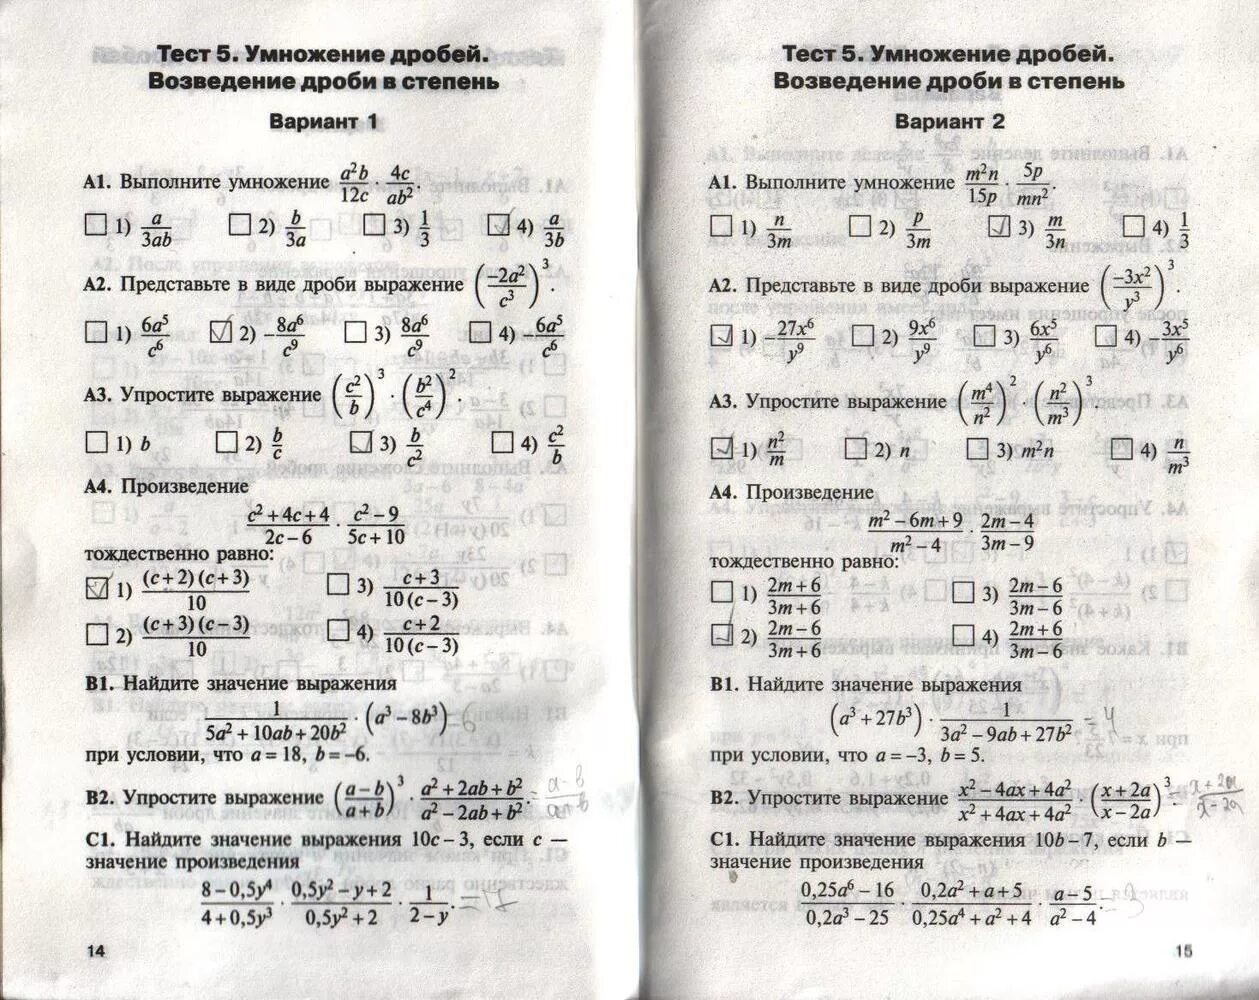 Тест 5. Умножение дробей.
Возведение дроби в степень
Вариант 1
А1. Выполните умножение a²b/12c · 4c/ab².
1) a/3ab 2) b/3a 3) 1/3 4) a/3b
А2. Представьте в виде дроби выражение (−2a²/c³)³.
1) 6a⁵/c⁶ 2) −8a⁶/c⁹ 3) 8a⁶/c⁹ 4) −6a⁵/c⁶
А3. Упростите выражение (c²/b)³ · (b²/c⁴)².
1) b 2) b/c 3) b/c² 4) c²/b
А4. Произведение
(c²+4c+4)/(2c−6) · (c²−9)/(5c+10)
тождественно равно:
1) (c+2)(c+3)/10 3) (c+3)/10(c−3)
2) (c+3)(c−3)/10 4) (c+2)/10(c−3)
В1. Найдите значение выражения
1/(5a²+10ab+20b²) · (a³−8b³)
при условии, что a = 18, b = −6.
В2. Упростите выражение ((a−b)/(a+b))³ · (a²+2ab+b²)/(a²−2ab+b²). = (a−b)/(a+b)
С1. Найдите значение выражения 10c − 3, если c —
значение произведения
(8−0,5y⁴)/(4+0,5y³) · (0,5y²−y+2)/(0,5y²+2) · 1/(2−y). = 17
14
Тест 5. Умножение дробей.
Возведение дроби в степень
Вариант 2
А1. Выполните умножение m²n/15p · 5p/mn².
1) n/3m 2) p/3m 3) m/3n 4) 1/3
А2. Представьте в виде дроби выражение (−3x²/y³)³.
1) −27x⁶/y⁹ 2) 9x⁶/y⁹ 3) 6x⁵/y⁶ 4) −3x⁵/y⁶
А3. Упростите выражение (m⁴/n²)² · (n²/m³)³.
1) n²/m 2) n 3) m²n 4) n/m³
А4. Произведение
(m²−6m+9)/(m²−4) · (2m−4)/(3m−9)
тождественно равно:
1) (2m+6)/(3m+6) 3) (2m−6)/(3m−6)
2) (2m−6)/(3m+6) 4) (2m+6)/(3m−6)
В1. Найдите значение выражения
(a³+27b³) · 1/(3a²−9ab+27b²) = 4
при условии, что a = −3, b = 5.
В2. Упростите выражение (x²−4ax+4a²)/(x²+4ax+4a²) · ((x+2a)/(x−2a))³. = (x+2a)/(x−2a)
С1. Найдите значение выражения 10b − 7, если b —
значение произведения
(0,25a⁶−16)/(0,2a³−25) · (0,2a²+a+5)/(0,25a⁴+a²+4) · (a−5)/(a²−4).
15